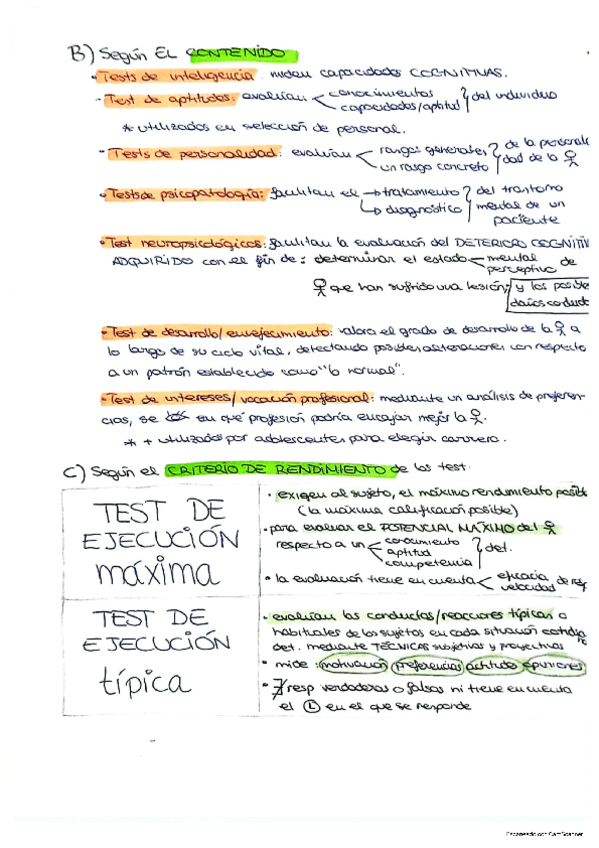 B) Según EL CONTENIDO
• Tests de inteligencia miden capacidades COGNITIVAS.
• Test de aptitudes: evalúan conocimientos capacidades/aptitud del individuo
* utilizados en selección de personal.
• Tests de personalidad: evalúan rasgos generales, un rasgo concreto de la personali
dad de la
• Tests de psicopatología: facilitan el → tratamiento del trastorno
↳ diagnóstico mental de un
paciente
• Test neuropsicológicos: facilitan la evaluación del DETERIORO COGNITIV
ADQUIRIDO con el fin de: determinar el estado mental perceptivo de
que han sufrido una lesión y los posible
daños conduct
• Test de desarrollo/envejecimiento: valora el grado de desarrollo de la a
lo largo de su ciclo vital, detectando posibles alteraciones con respecto
a un patrón establecido como "lo normal".
• Test de intereses/vocación profesional: mediante un análisis de preferen-
cias, se en qué profesión podría encajar mejor la
* + utilizados por adolescentes para elegir carrera.
C) Según el CRITERIO DE RENDIMIENTO de los test.
TEST DE
EJECUCIÓN
máxima
• exigen al sujeto, el máximo rendimiento posibl
(la máxima calificación posible)
• para evaluar el POTENCIAL MÁXIMO del
respecto a un conocimiento
aptitud det.
competencia
• la evaluación tiene en cuenta eficacia de res
velocidad
TEST DE
EJECUCIÓN
típica
• evalúan las conductas/reacciones típicas o
habituales de los sujetos en cada situación
det. mediante TÉCNICAS subjetivas y proyectivas
• mide: motivación preferencias actitudes opiniones
• ∄ resp verdaderas o falsas ni tiene en cuenta
el Ⓛ en el que se responde
Escaneado con CamScanner